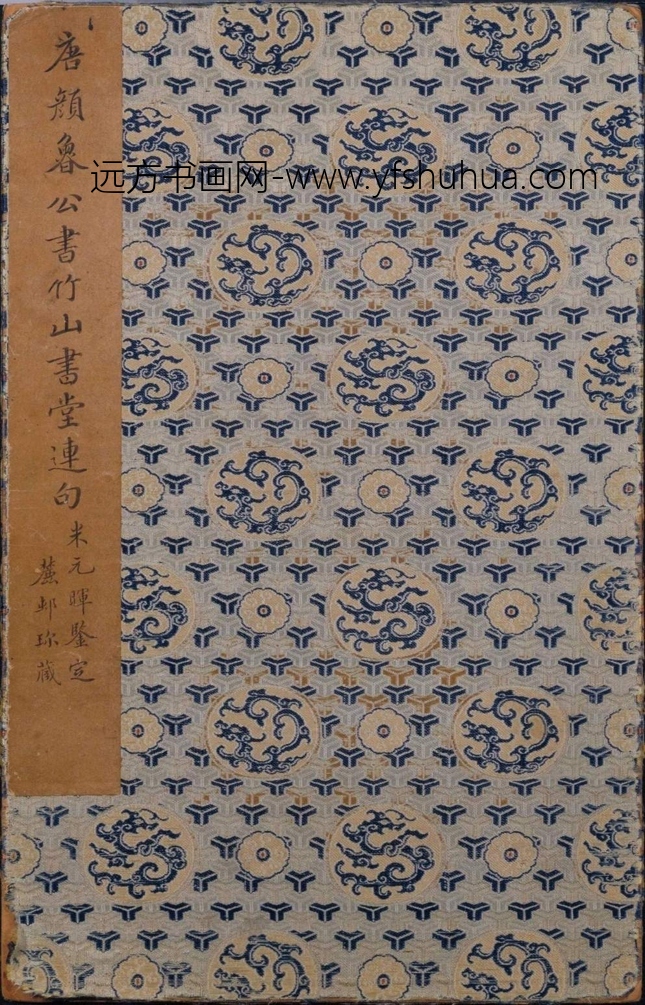 唐顏魯公書竹山書堂連句
米元暉鑒定
蕉邨珍藏
远方书画网-www.yfshuhua.com